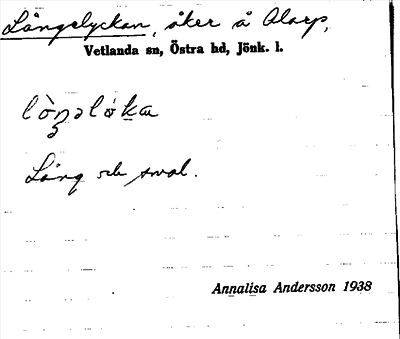 Långelyckan, åker å Alarp,
Vetlanda sn, Östra hd, Jönk. l.
Lång och smal.
Annalisa Andersson 1938